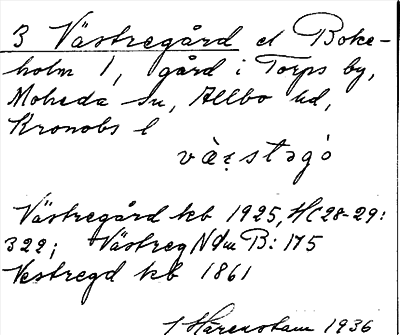 3 Västregård el Boke-
holm 1, gård i Torps by,
Moheda sn, Allbo hd,
Kronobs l
væ̀ʂtəgó
Västregård kb 1925, HC28-29:
322; Västreg Ndm B: 175
Vestregd kb 1861
1 Härenstam 1936